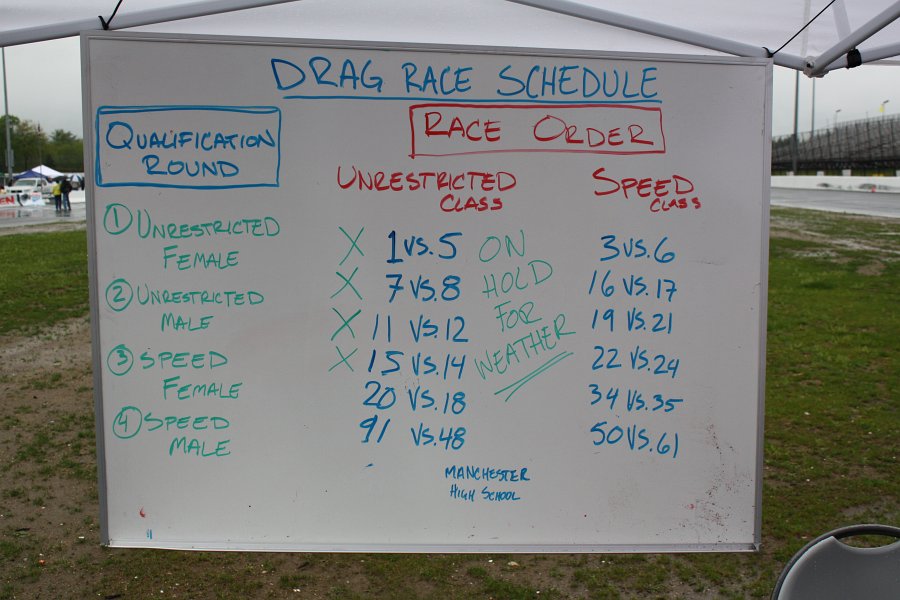 DRAG RACE SCHEDULE
QUALIFICATION
ROUND
1 UNRESTRICTED
FEMALE
2 UNRESTRICTED
MALE
3 SPEED
FEMALE
4 SPEED
MALE
RACE ORDER
UNRESTRICTED
CLASS
X 1 VS. 5
X 7 VS. 8
X 11 VS. 12
X 15 VS. 14
20 VS. 18
91 VS. 48
ON
HOLD
FOR
WEATHER
MANCHESTER
HIGH SCHOOL
SPEED
CLASS
3 VS. 6
16 VS. 17
19 VS. 21
22 VS. 24
34 VS. 35
50 VS. 61